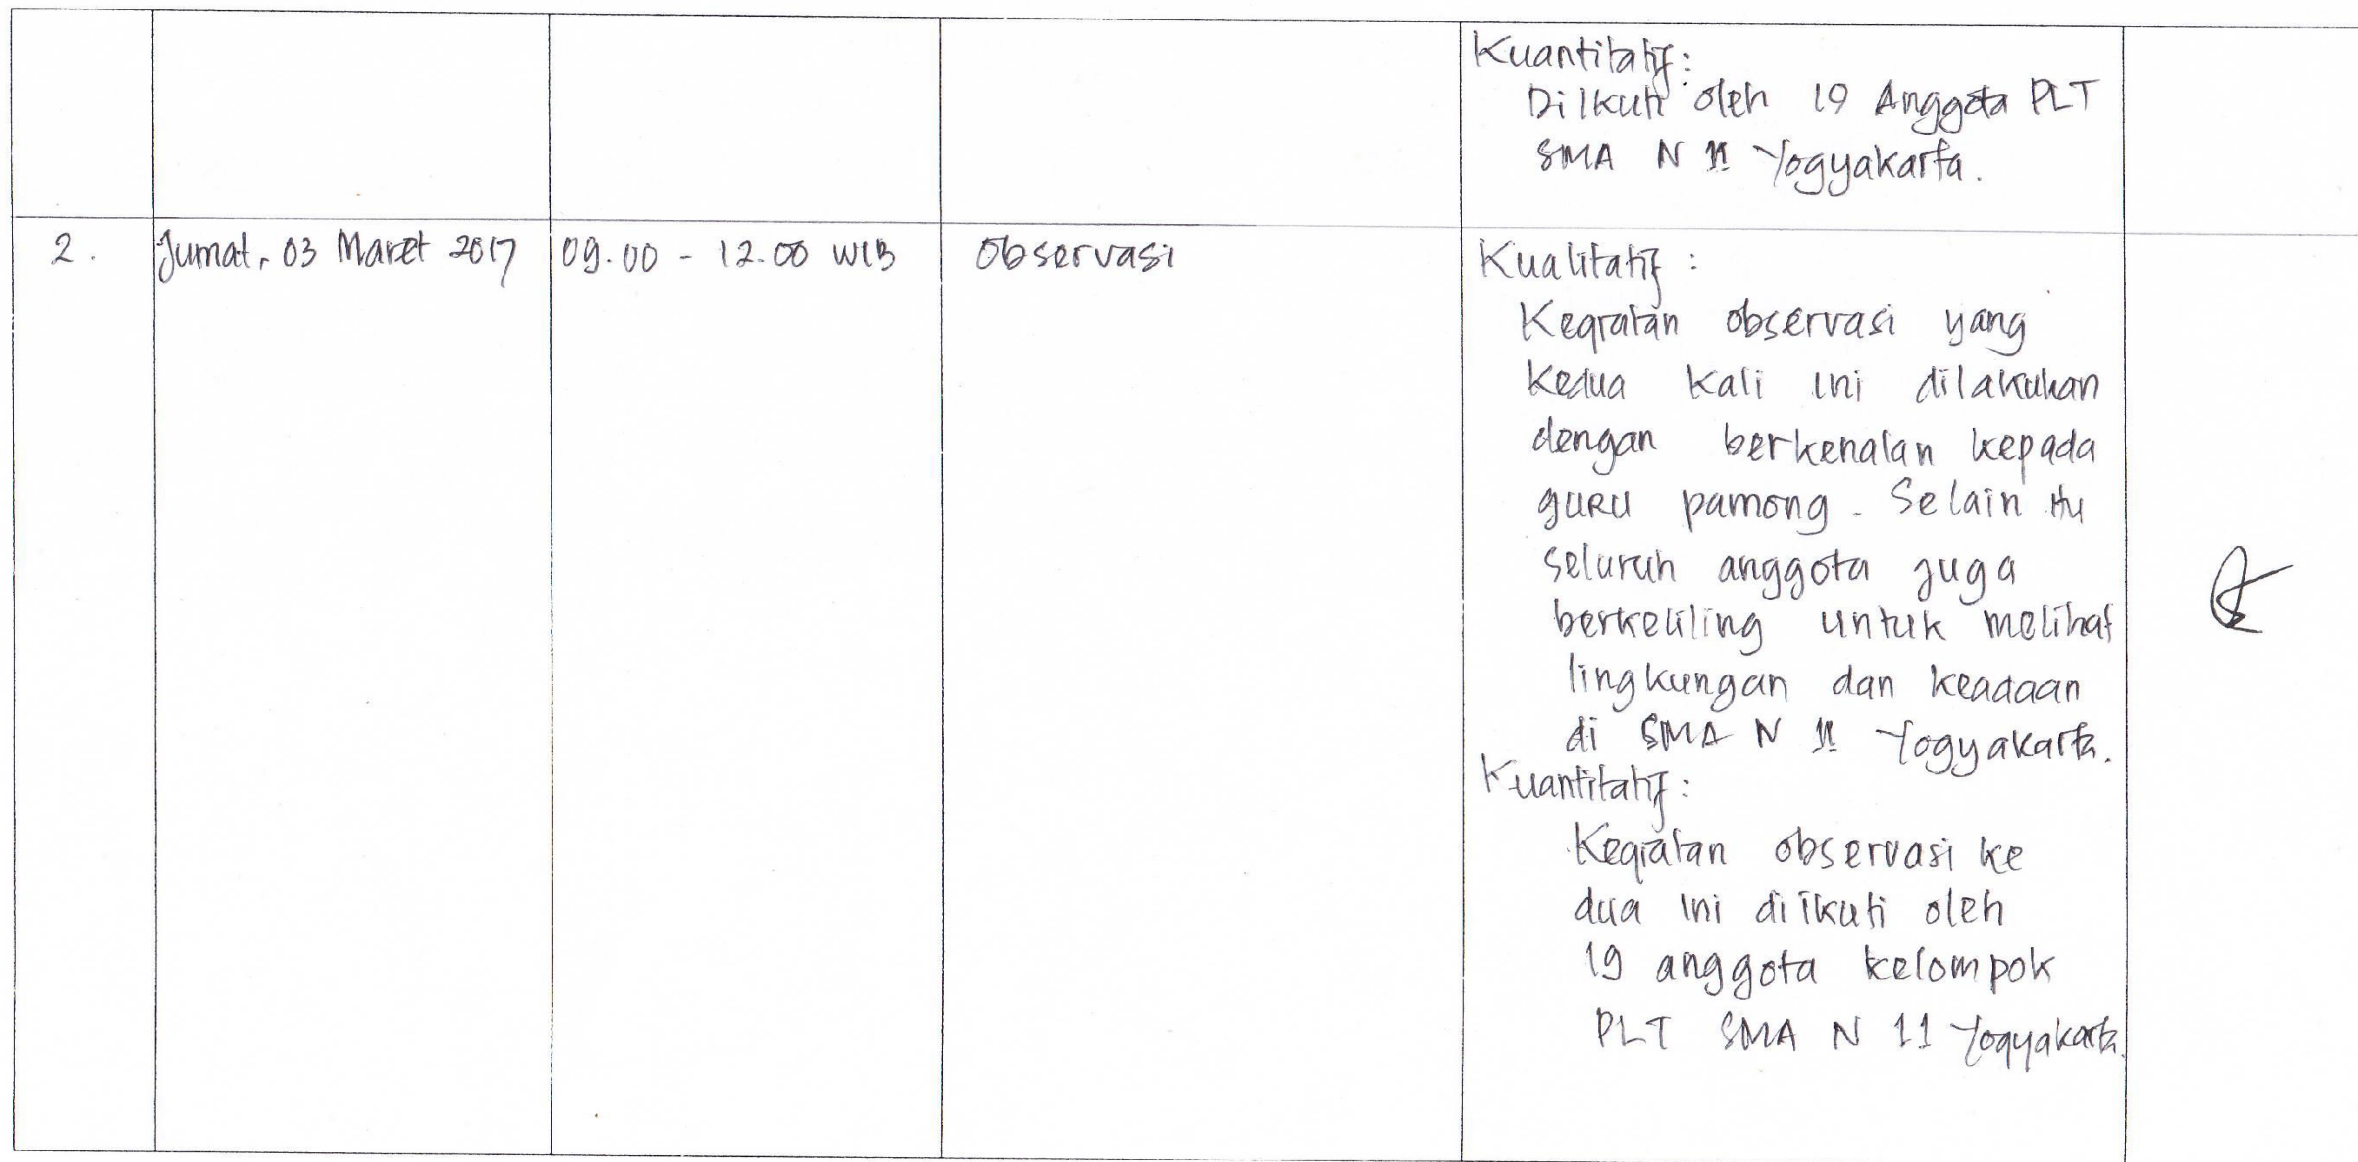 Kuantitatif :
Diikuti oleh 19 Anggota PLT
SMA N 11 Yogyakarta.
2. Jumat, 03 Maret 2017 09.00 - 12.00 WIB Observasi Kualitatif :
Kegiatan observasi yang
kedua kali ini dilakukan
dengan berkenalan kepada
guru pamong. Selain itu
seluruh anggota juga
berkeliling untuk melihat
lingkungan dan keadaan
di SMA N 11 Yogyakarta.
Kuantitatif :
Kegiatan observasi ke
dua ini diikuti oleh
19 anggota kelompok
PLT SMA N 11 Yogyakarta.